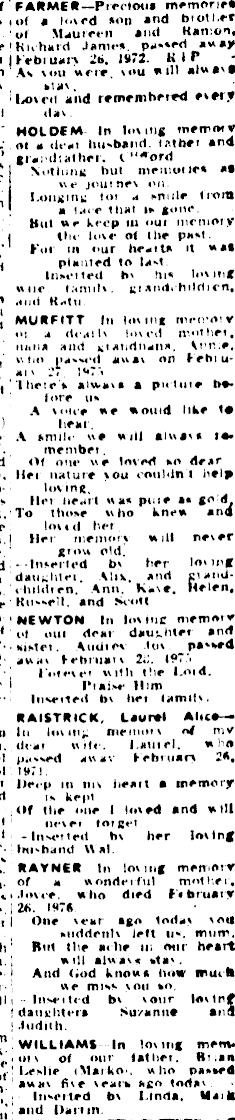 FARMER—Precious memories
of a loved son and brother
of Maureen and Ramon,
Richard James, passed away
February 26, 1972. R I P
As you were, you will always
stay,
Loved and remembered every
day.
HOLDEM In loving memory
of a dear husband, father and
grandfather,
Nothing but memories as
we journey on,
Longing for a smile from
a face that is gone.
But we keep in our memory
the love of the past,
For in our hearts it was
planted to last.
Inserted by his loving
wife, family, grandchildren,
and Ratu.
MURFITT In loving memory
of a dearly loved mother,
nana and grandnana, Annie,
who passed away on Febru-
ary 27, 1975
There's always a picture be-
fore us
A voice we would like to
hear,
A smile we will always re-
member,
Of one we loved so dear
Her nature you couldn't help
loving,
Her heart was pure as gold,
To those who knew and
loved her
Her memory will never
grow old.
—Inserted by her loving
daughter, Alix, and grand-
children, Ann, Kaye, Helen,
Russell, and Scott
NEWTON In loving memory
of our dear daughter and
sister, Audrey Joy passed
away February 1975
Forever with the Lord,
Praise Him
Inserted by her family.
RAISTRICK, Laurel Alice—
In loving memory of my
dear wife, Laurel, who
passed away February 26,
1971.
Deep in my heart a memory
is kept
Of the one I loved and will
never forget
—Inserted by her loving
husband Wal.
RAYNER In loving memory
of a wonderful mother,
Joyce, who died February
26, 1976
One year ago today you
suddenly left us, mum,
But the ache in our heart
will always stay,
And God knows how much
we miss you so.
—Inserted by your loving
daughters Suzanne and
Judith.
WILLIAMS—In loving mem-
ory of our father, Brian
Leslie (Marko), who passed
away five years ago today.
Inserted by Linda, Mark
and Darrin.